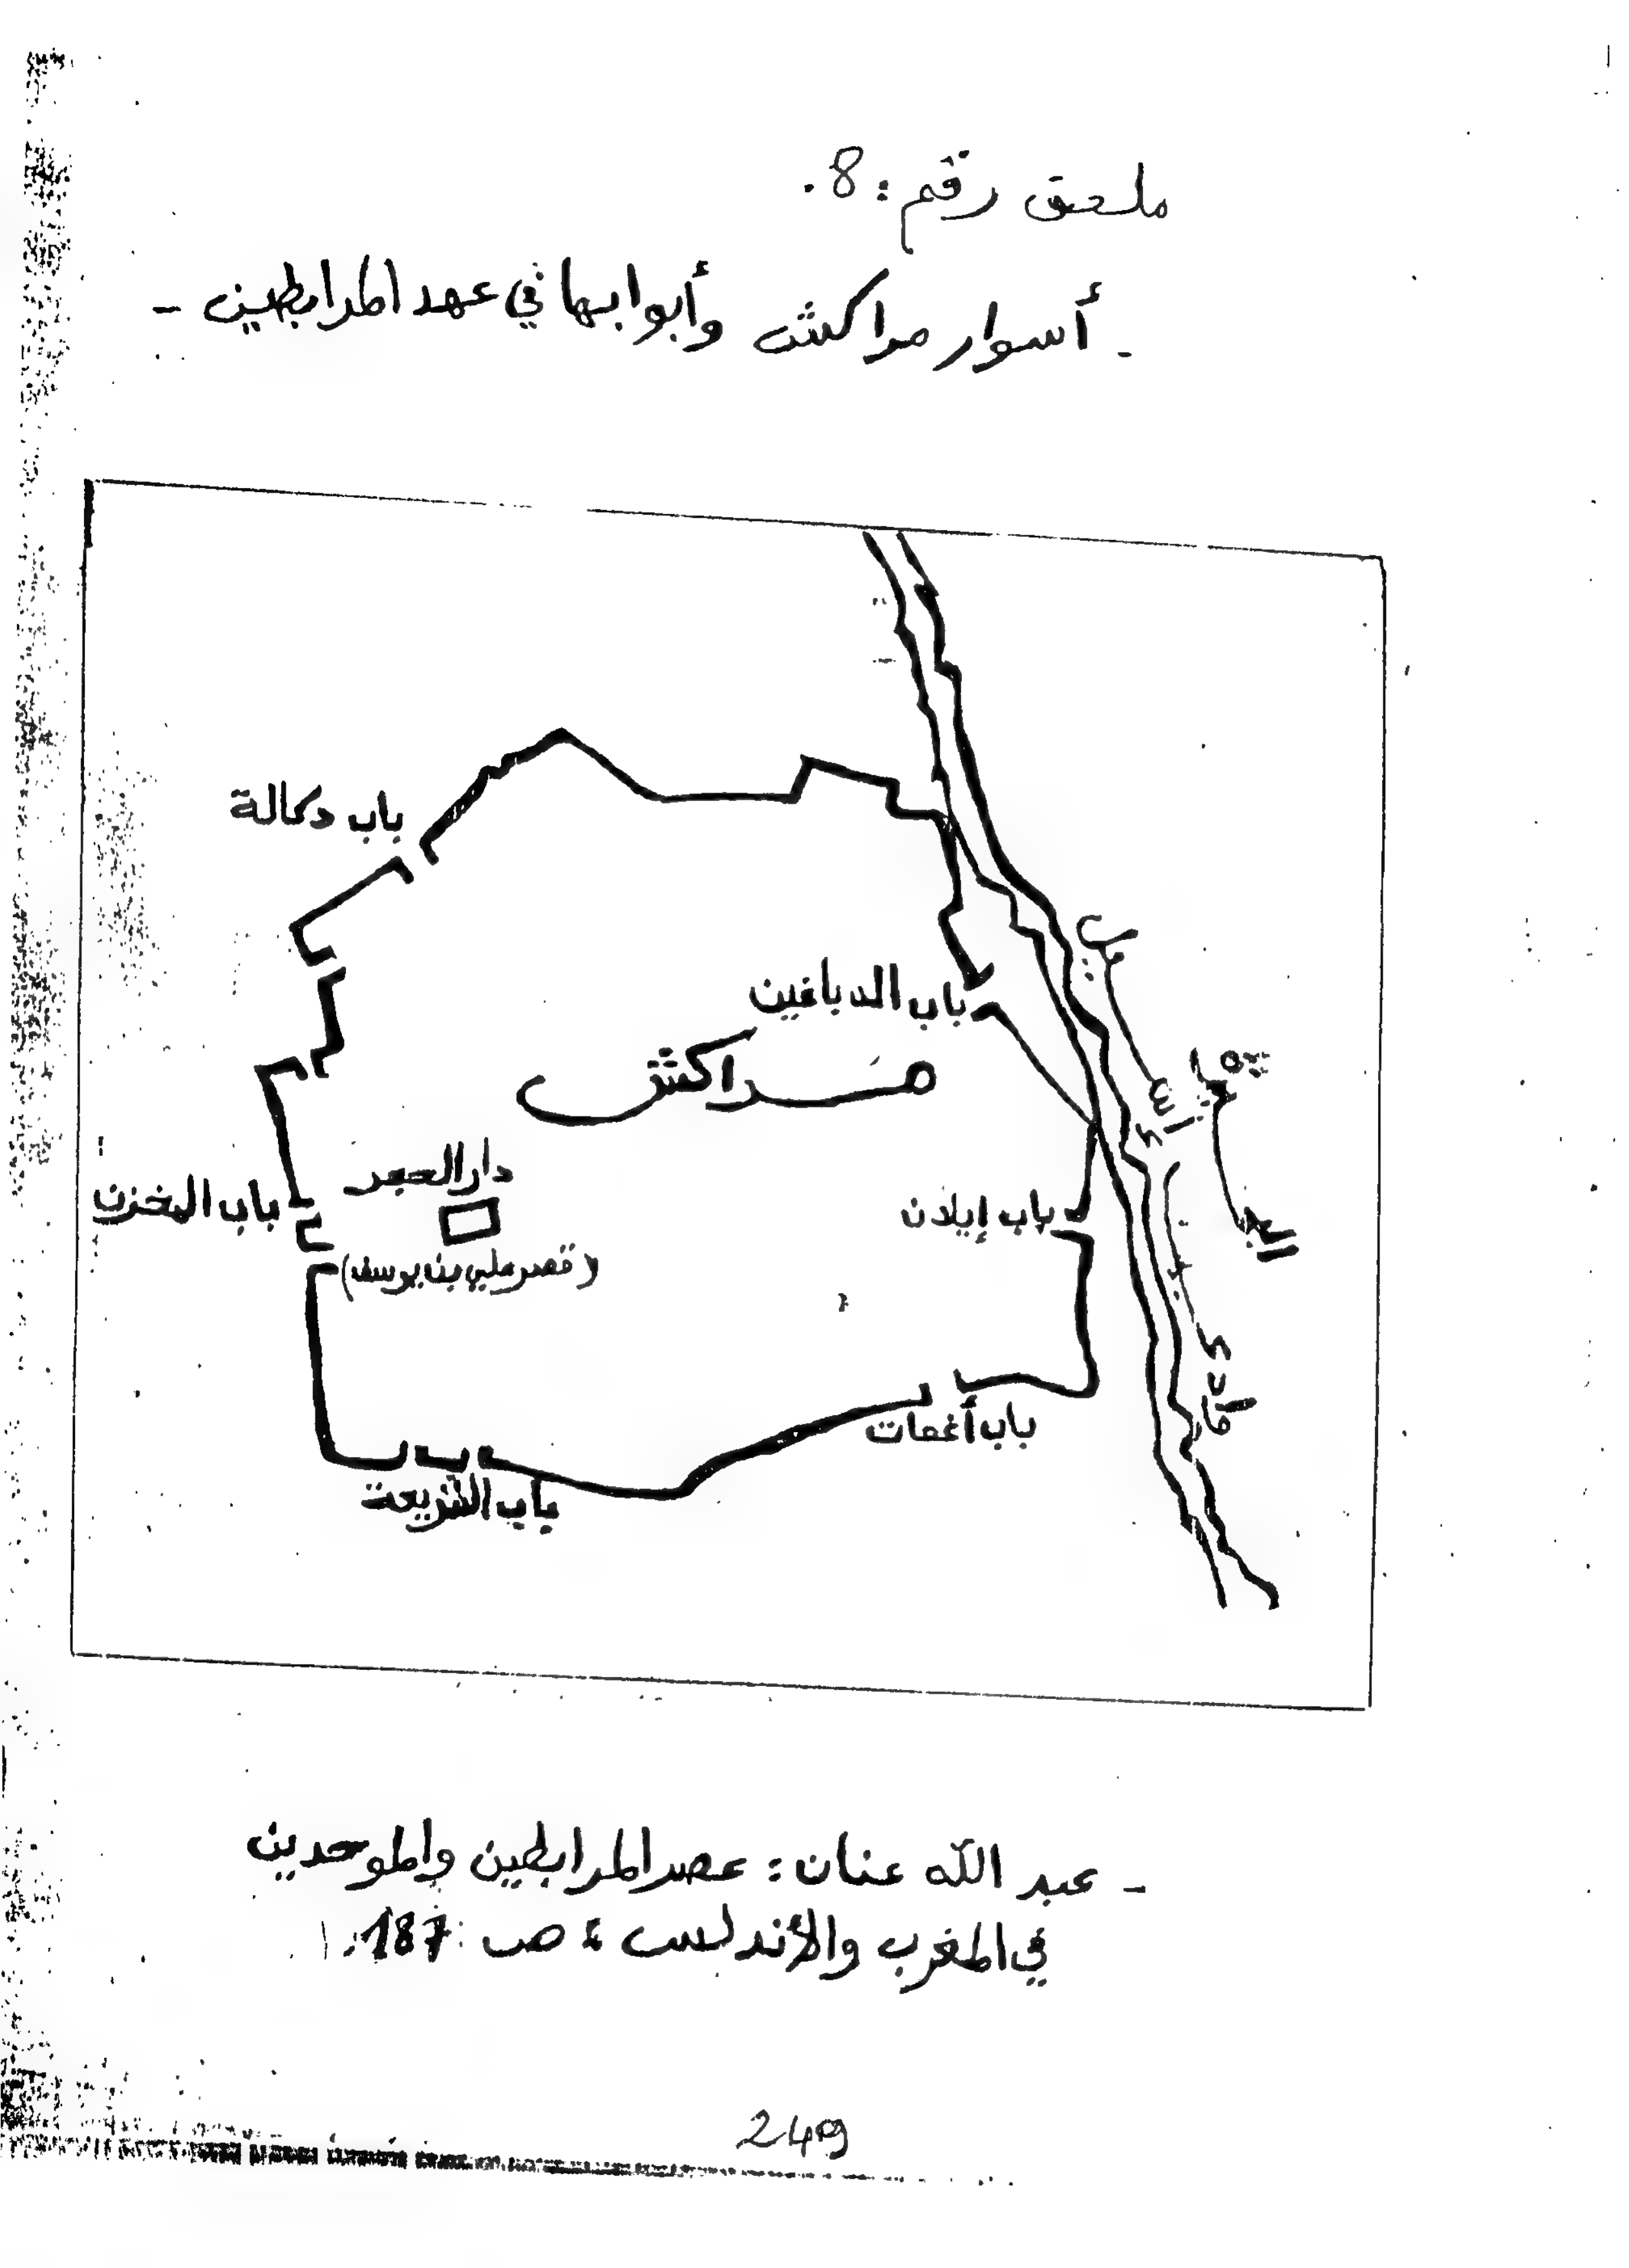 ملحق رقم: 8.
- أسوار مراكش وأبوابها في عهد المرابطين -
باب دكالة
باب الدباغين
مراكش
دار الحجر
باب المخزن
(قصر علي بن يوسف)
باب إيلان
باب أغمات
باب الشريعة
- عبد الله عنان: عصر المرابطين والموحدين
في المغرب والأندلس، ص: 187.
249